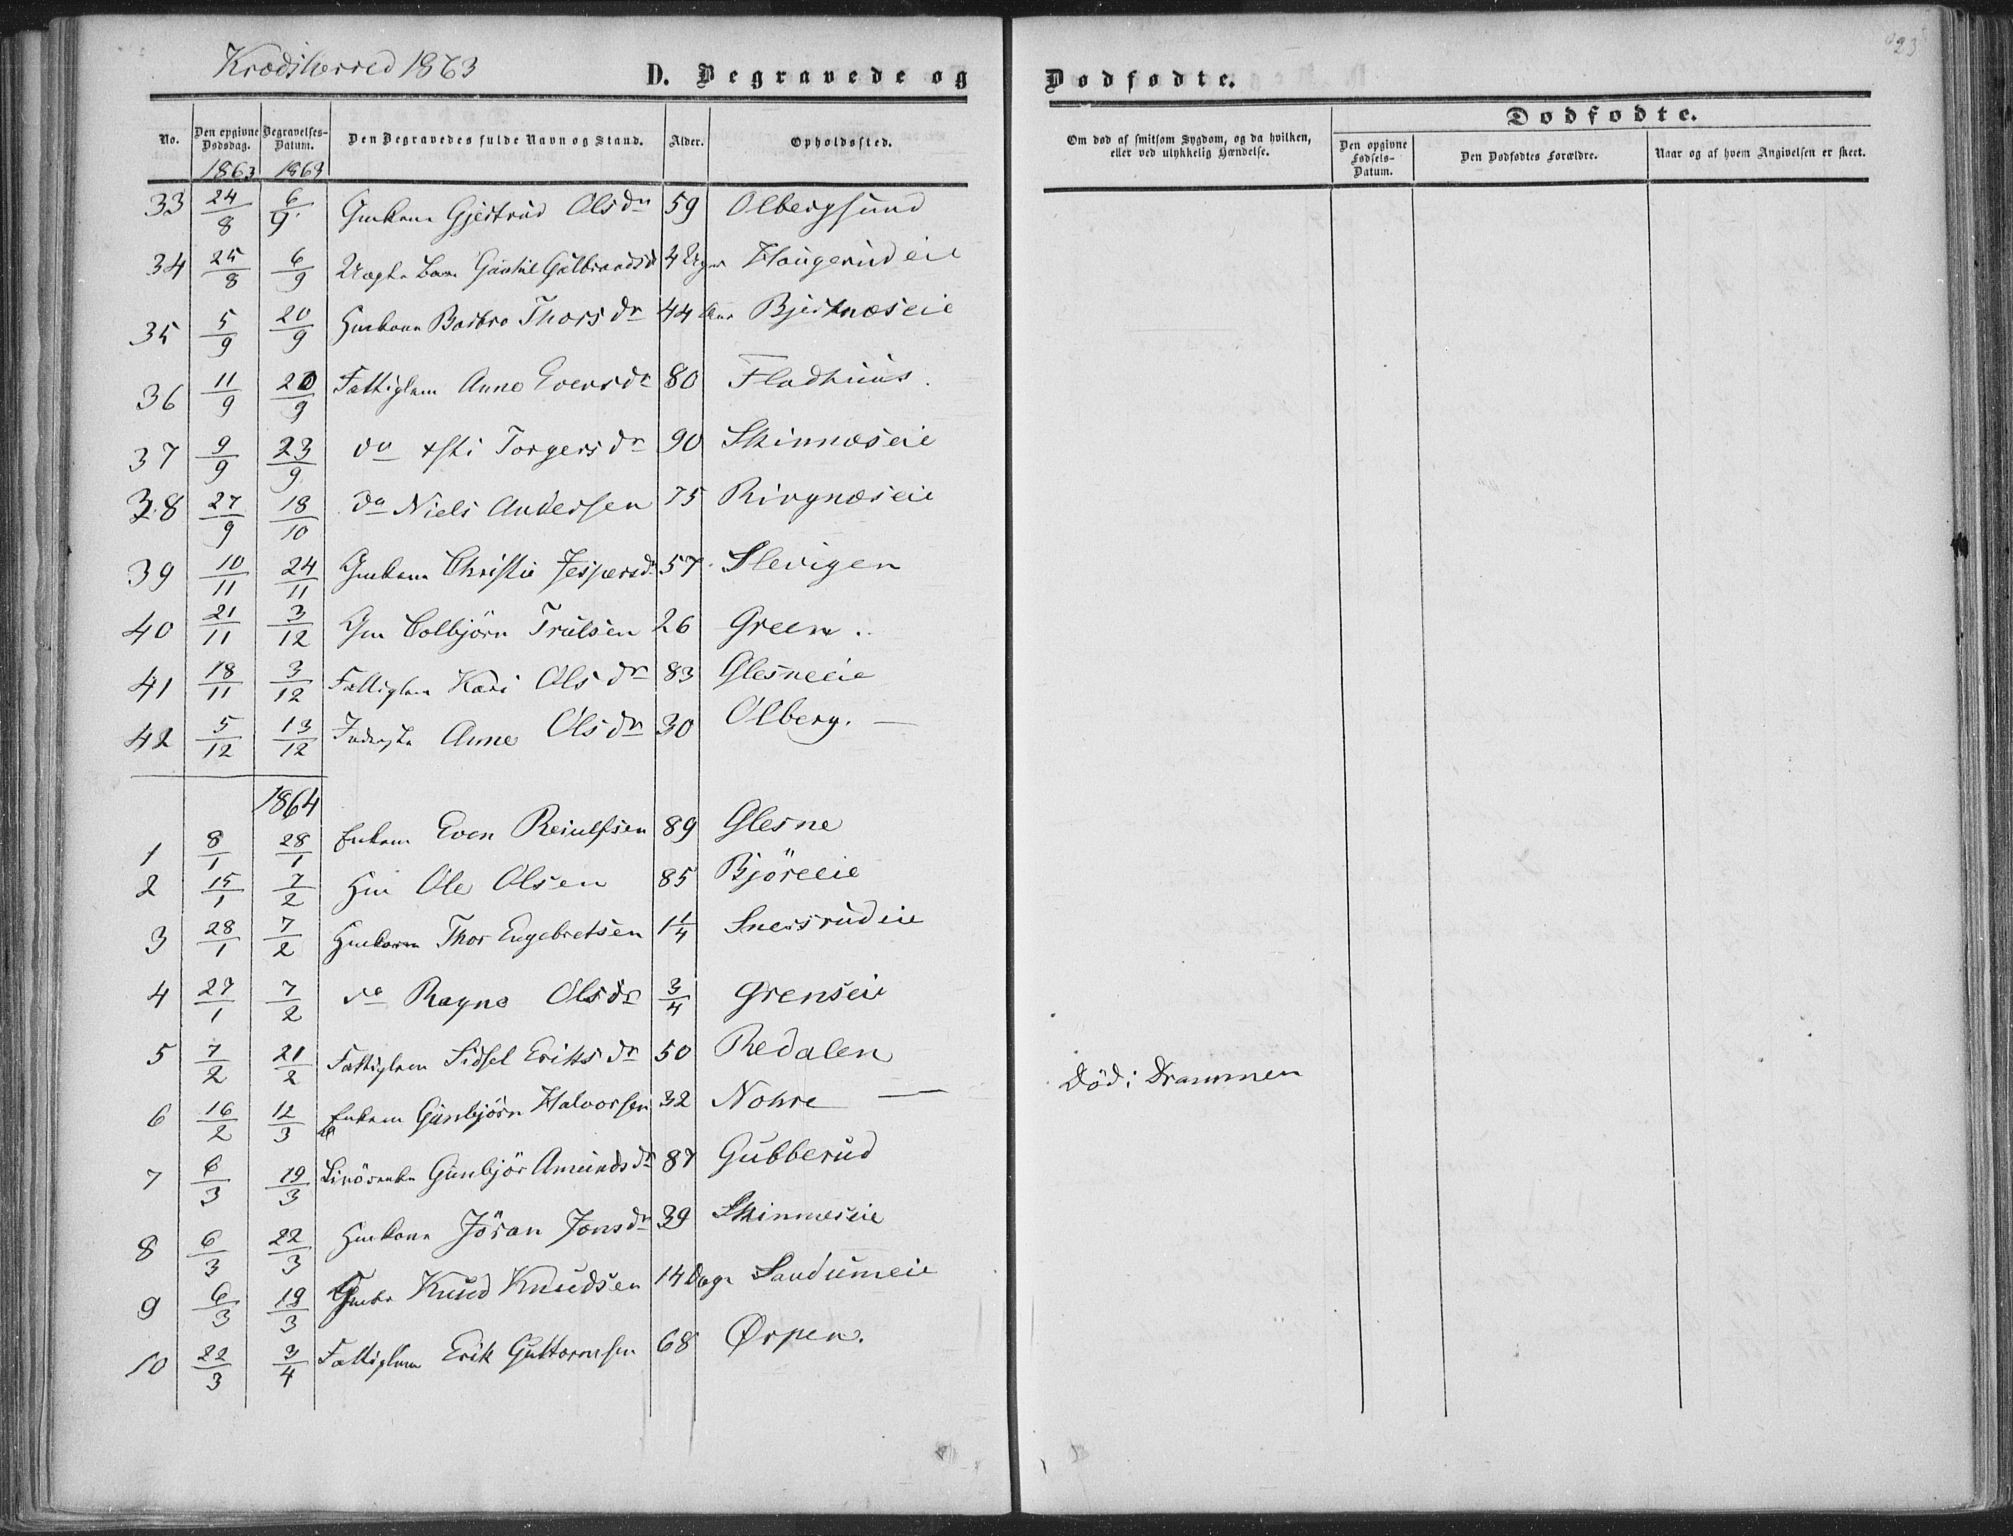 Krødsherred 1863
D. Begravede og
Dødfødte.
23
No. Den opgivne Dødsdag. Begravelses-Datum. Den Begravedes fulde Navn og Stand. Alder. Opholdssted.
Om død af smitsom Sygdom, og da hvilken, eller ved ulykkelig Hændelse.
Dødfødte.
Den opgivne Fødsels-Datum. Den Dødfødtes Forældre. Naar og af hvem Angivelsen er skeet.
1863 1863
33 24/8 6/9 Gmkone Gjertrud Olsdr 59 Olbergsund
34 25/8 6/9 Uægte Barn Guulbrandsd 4 Uger Haugerudeie
35 5/9 20/9 Hmkone Barbro Thorsdr 44 Aar Bjertnæseie
36 11/9 20/9 Fattiglem Anne Evensdr 80 Fladhuus.
37 9/9 23/9 do Torgersdr 90 Skinnæseie
38 27/9 18/10 do Niels Andersen 75 Ringnæseie
39 10/11 24/11 Gmkone Christie Jespersdr 57 Slevigen
40 21/11 3/12 Gm Colbjörn Trulsen 26 Green.
41 18/11 3/12 Fattiglem Kari Olsdr 83 Glesneeie
42 5/12 13/12 Inderste Anne Olsdr 30 Olberg. —
1864
1 8/1 28/1 Enkem Even Reiulfsen 89 Glesne
2 15/1 7/2 Hm Ole Olsen 85 Björeeie
3 28/1 7/2 Hmbarn Thor Engebretsen 1 1/4 Snersrudeie
4 27/1 7/2 do Ragne Olsdr 3/4 Grenseie
5 7/2 21/2 Fattiglem Sidsel Eriksdr 50 Redalen
6 16/2 12/3 Enkem Gunbjörn Halvorsen 32 Nohre — Död i Drammen
7 6/3 19/3 Gunbjör Amundsdr 87 Gubberud
8 6/3 22/3 Hmkone Jöran Jonsdr 39 Skinnæseie
9 6/3 19/3 Knud Knudsen 14 Dage Sandumeie
10 22/3 3/4 Fattiglem Erik Guttormsen 68 Ørpen.